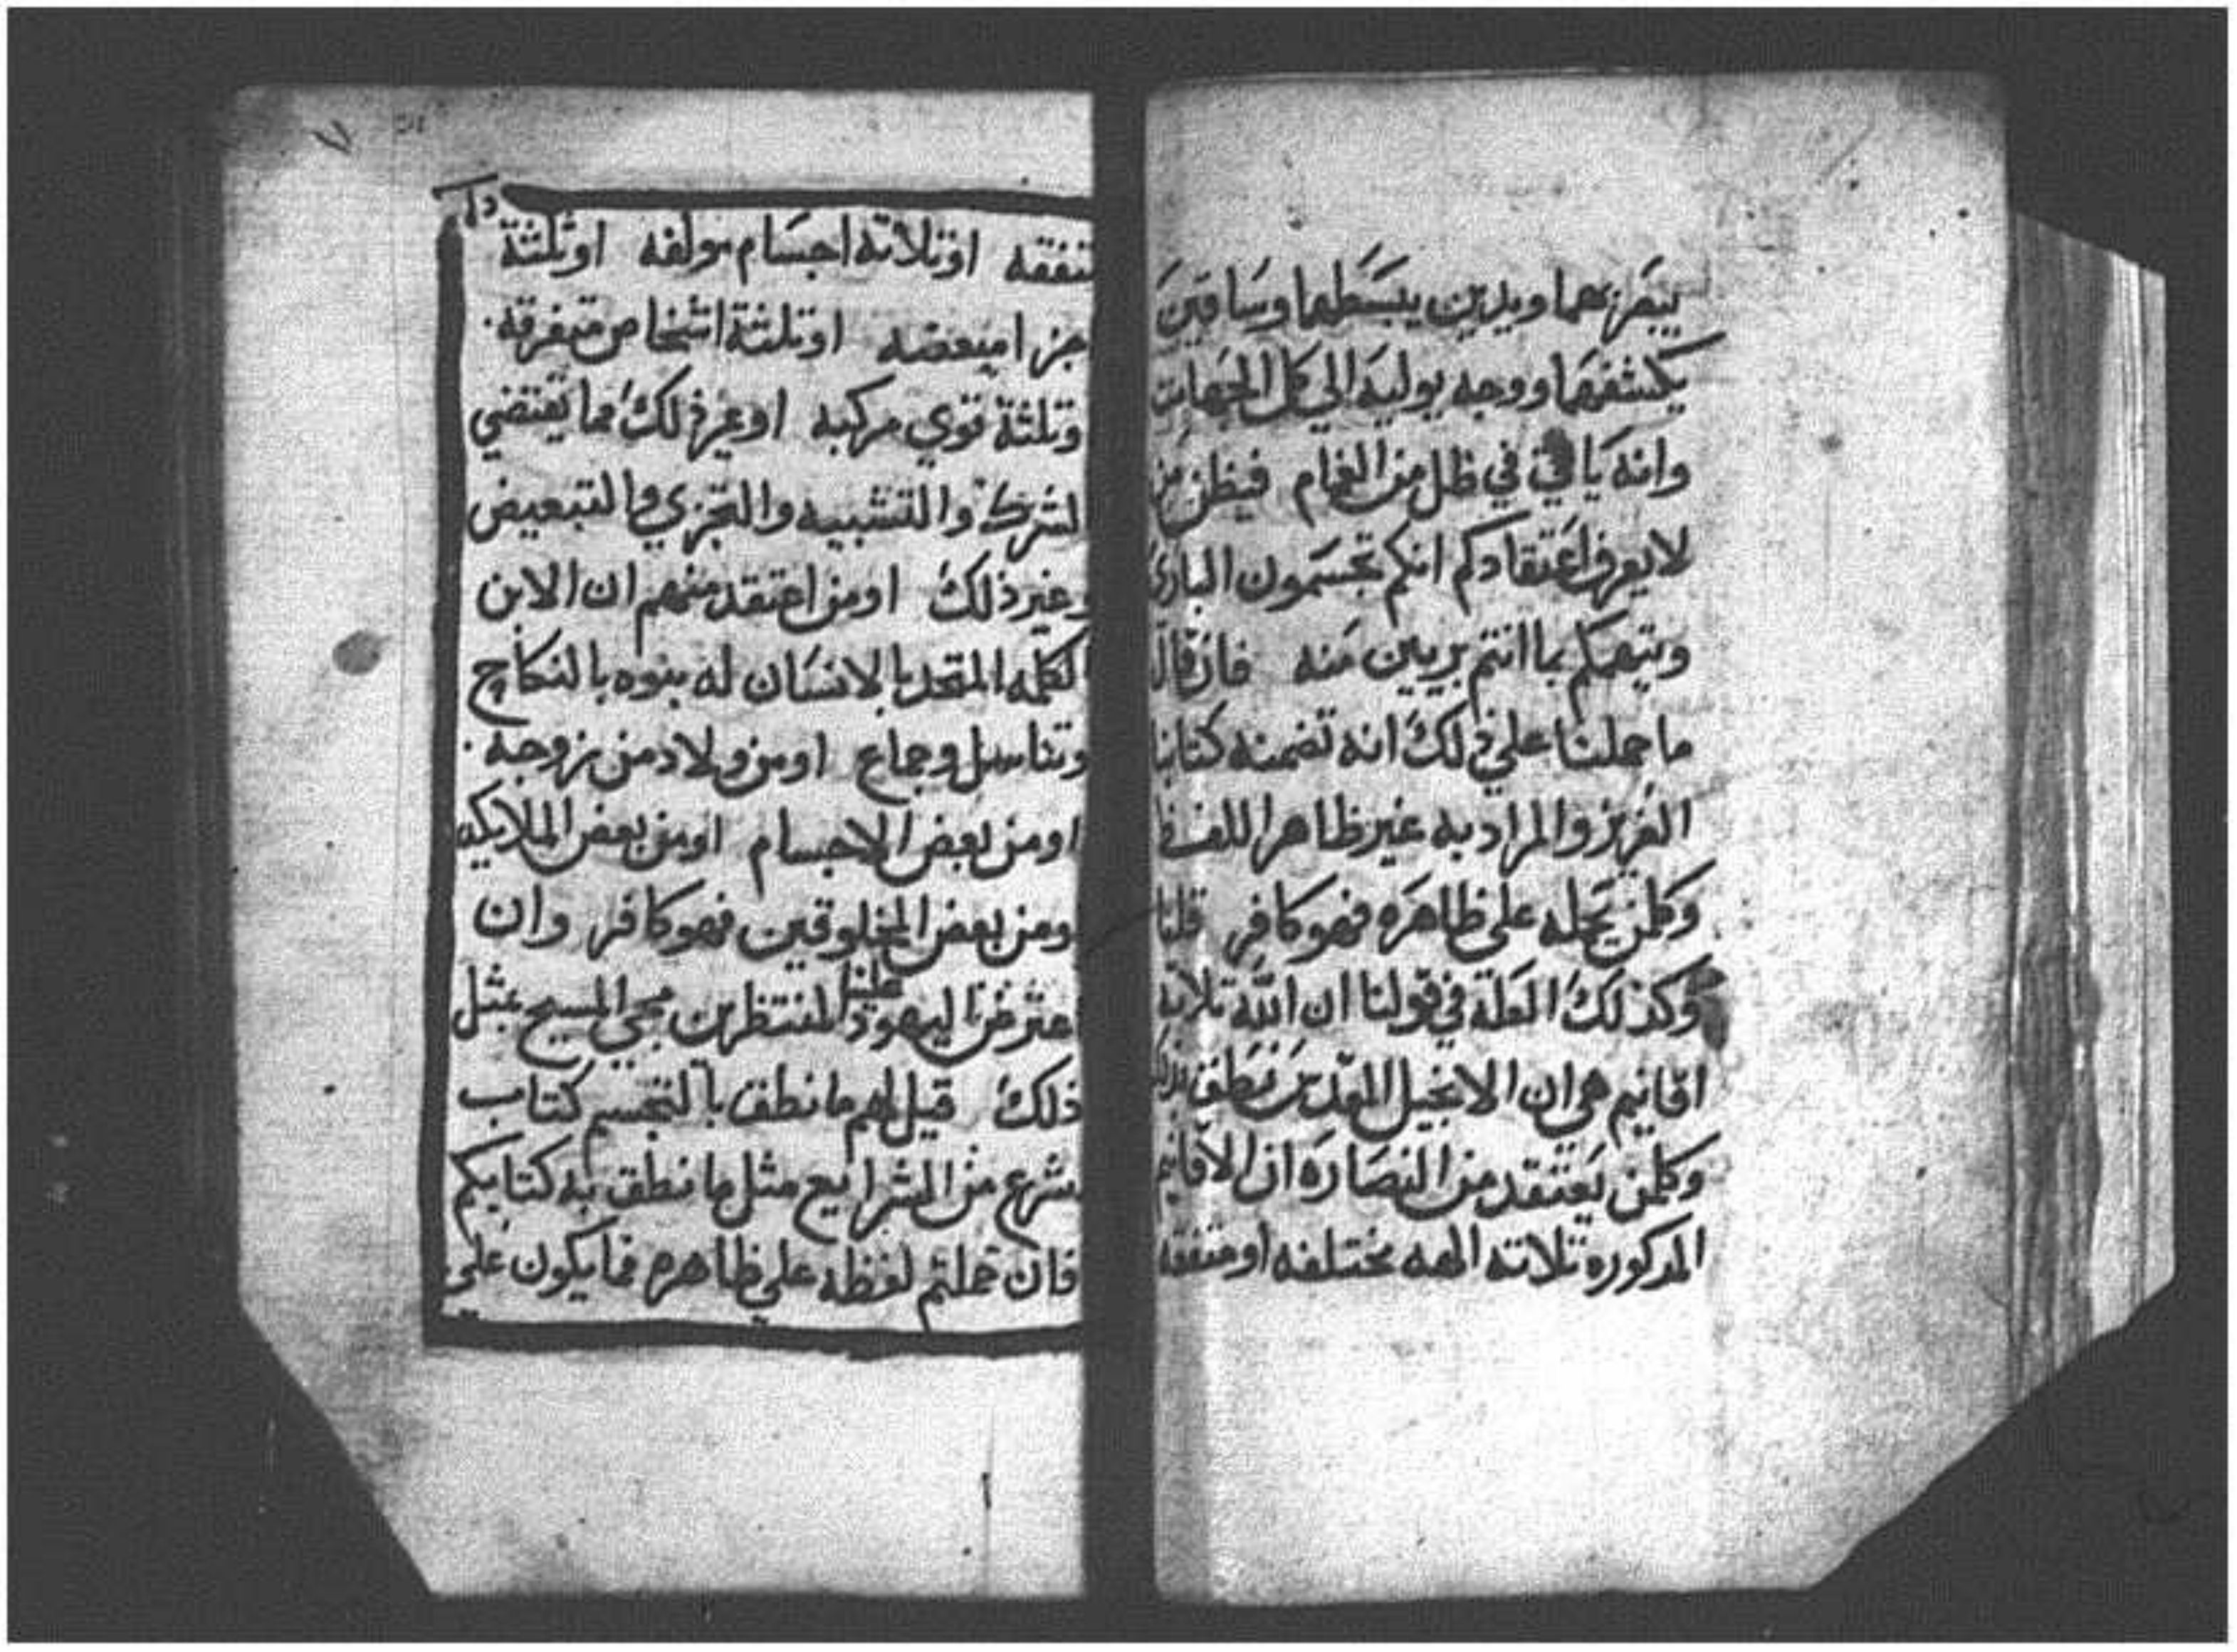 يبصر بهما ويدين يبسطهما وساقين
يكشفهما ووجه يوليه الي كل الجهات
وانه ياتي في ظل من الغمام فيظن من
لا يعرف اعتقادكم انكم تجسمون الباري
ويتهمكم بما انتم بريين منه فان قال
ما حملنا علي ذلك انه تضمنه كتابنا
العزيز والمراد به غير ظاهر اللفظ
وكلمن يحمله علي ظاهره فهو كافر قلنا
وكذلك العلة في قولنا ان الله تلاته
اقانيم هي ان الانجيل المقدس نطق بذلك
وكلمن يعتقد من النصاره ان الاقانيم
المدكوره تلاته الهه مختلفه او متفقه
تفقه او تلاته اجسام مولفه او تلثة
جزا مبعضه او تلثة اشخاص متفرقه
وتلثة قوي مركبه او غير ذلك مما يقتضي
لشرك والتشبيه والتجزي والتبعيض
وغير ذلك او من اعتقد منهم ان الابن
لكلمه المتحد بالانسان له بنوه بالنكاح
وتناسل وجماع او من ولاد من زوجه
او من بعض الاجسام او من بعض الملايكه
ومن بعض المخلوقين فهو كافر وان
اعترض علينا اليهود المنتظرين مجي المسيح بمثل
ذلك قيل لهم ما نطق بالتجسم كتاب
شرع من الشرايع مثل ما نطق به كتابكم
فان حملتم لفظه علي ظاهره فما يكون علي